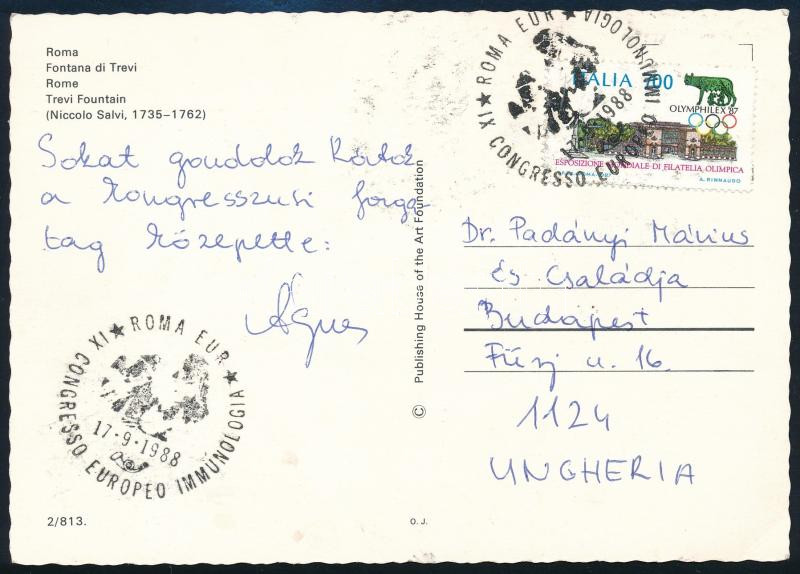 Roma
Fontana di Trevi
Rome
Trevi Fountain
(Niccolo Salvi, 1735–1762)
Sokat gondolok Rátok
a kongresszusi forga
tag közepette:
Ágnes
★ ROMA EUR ★
IX CONGRESSO EUROPEO IMMUNOLOGIA
17-9-1988
2/813.
© Publishing House of the Art Foundation
O. J.
★ ROMA EUR ★
IX CONGRESSO EUROPEO IMMUNOLOGIA
1988
ITALIA 700
OLYMPHILEX '87
ESPOSIZIONE MONDIALE DI FILATELIA OLIMPICA
A. RINNAUDO
Dr. Padányi Márius
és Családja
Budapest
Fürj u. 16.
1124
UNGHERIA